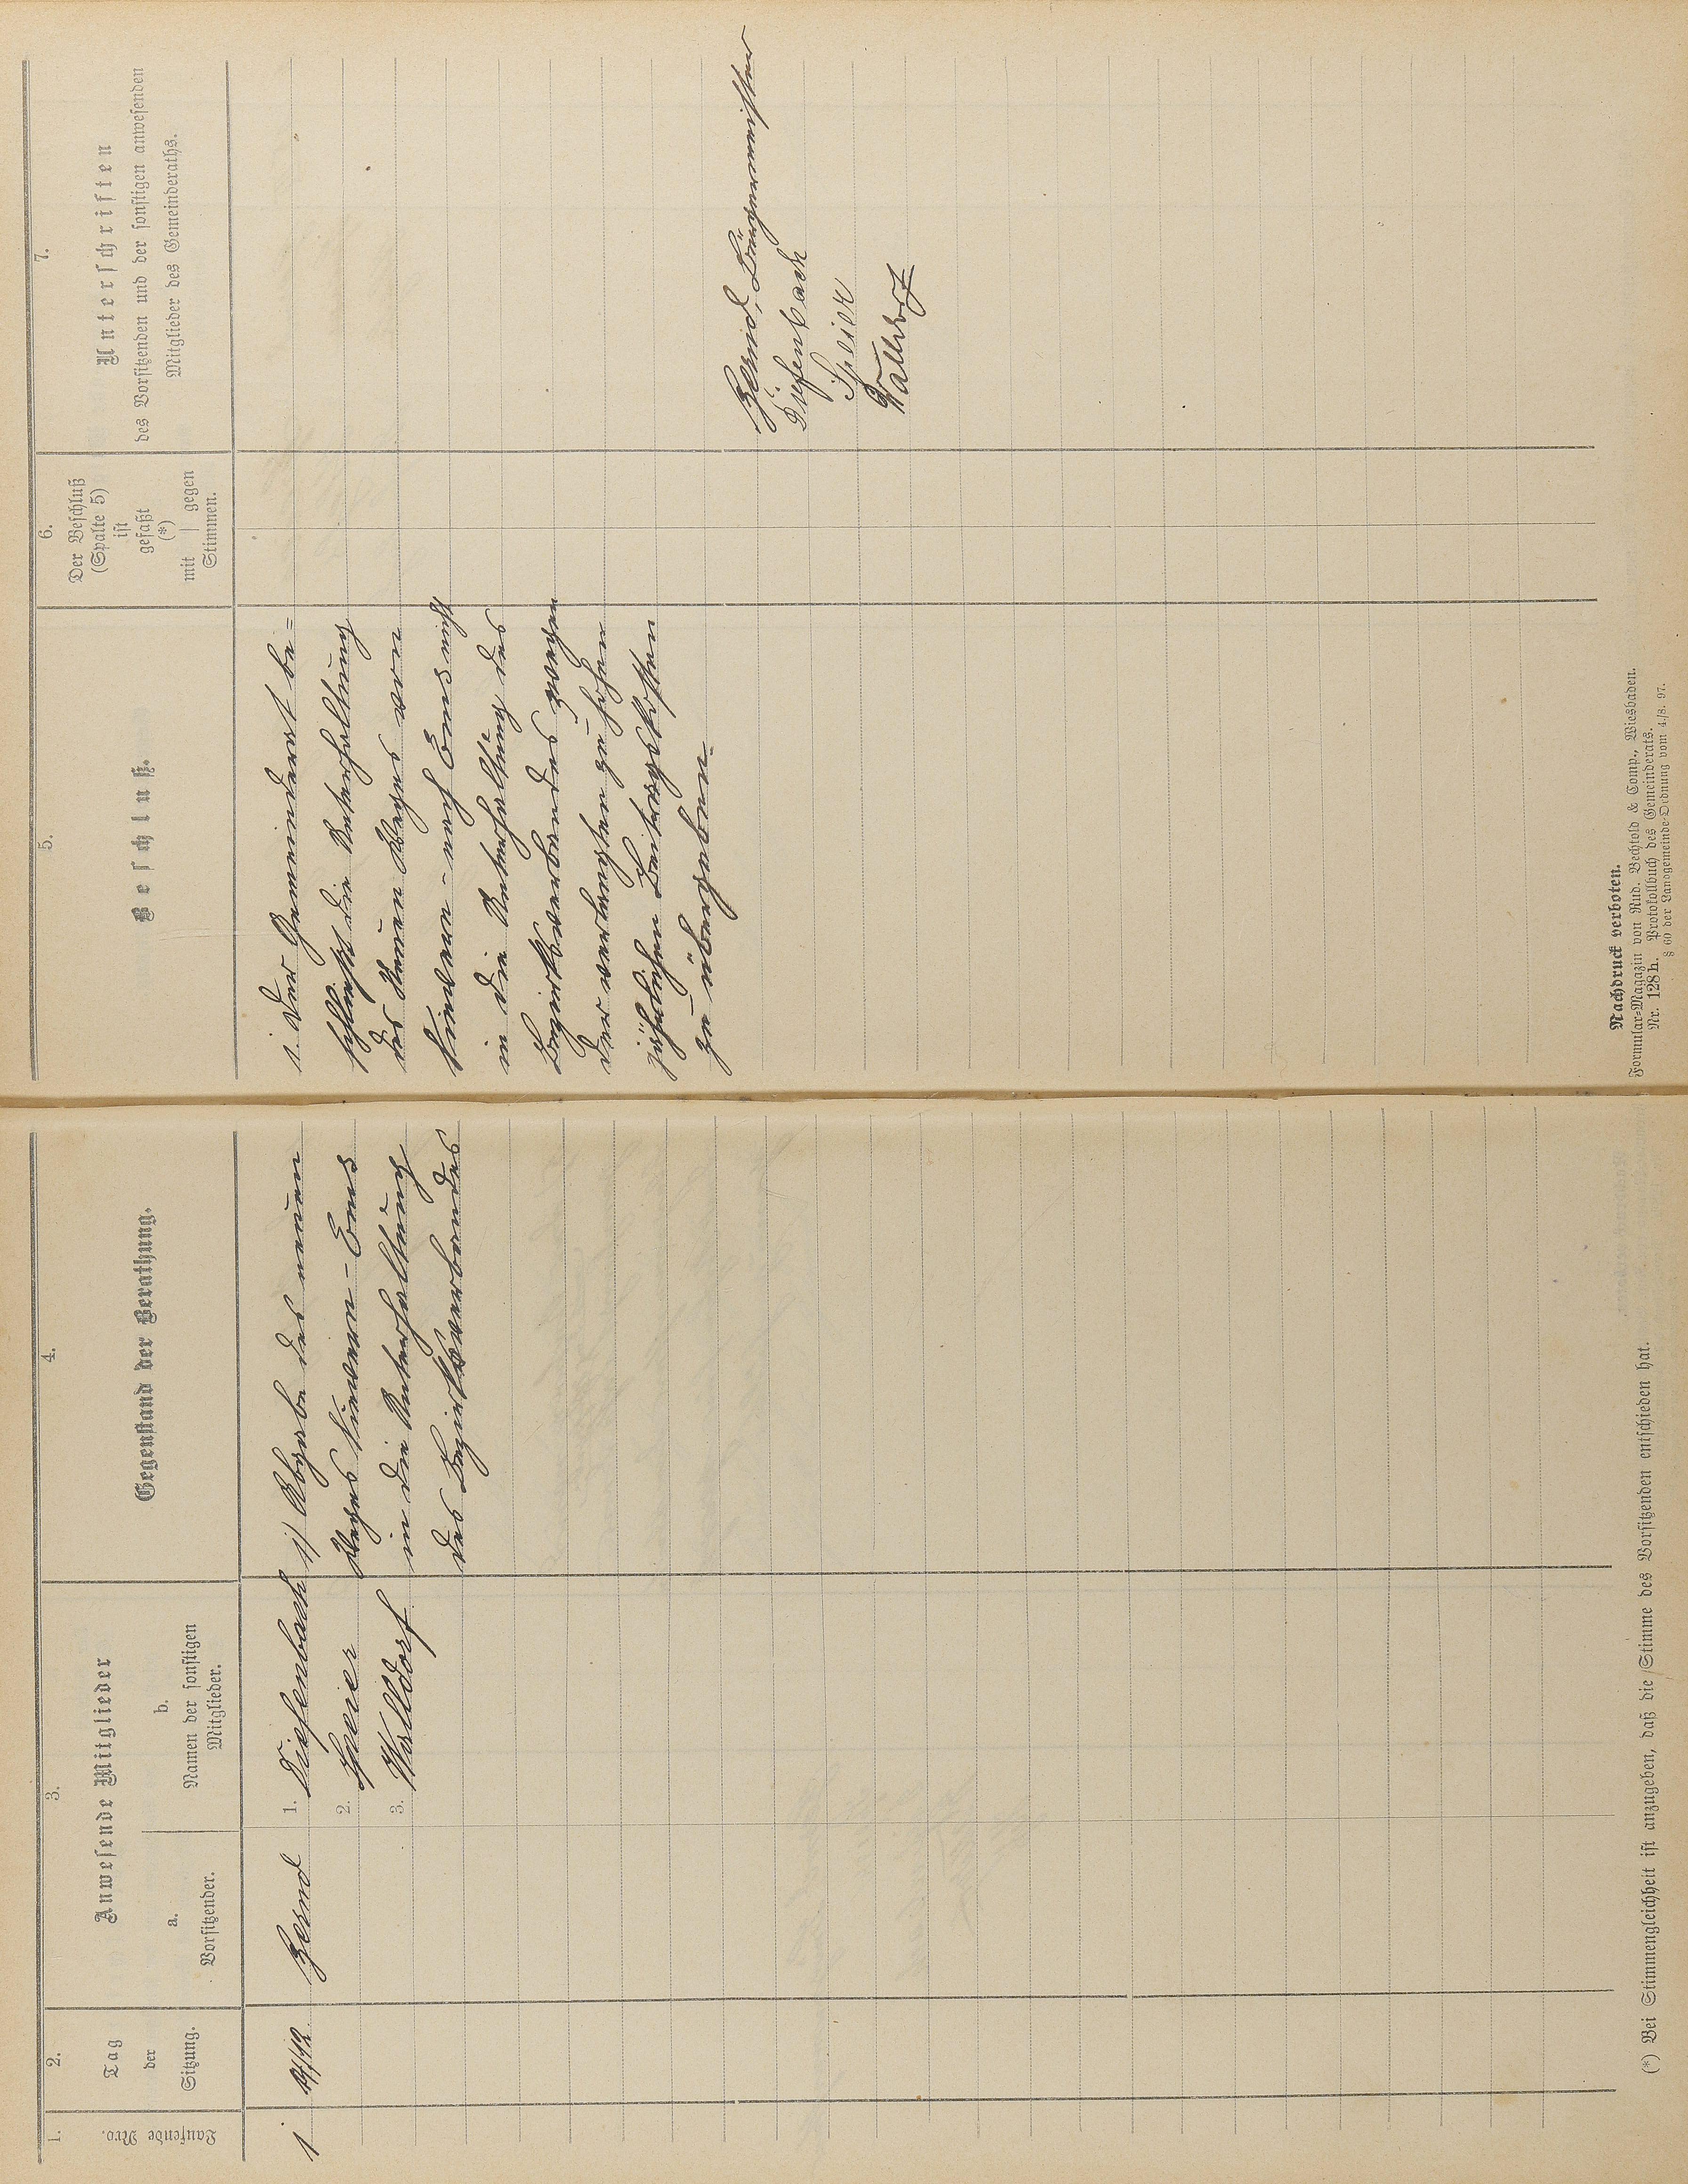 1.
Laufende Nro.
2.
Tag
der
Sitzung.
3.
Anwesende Mitglieder
a.
Vorsitzender.
b.
Namen der sonstigen
Mitglieder.
4.
Gegenstand der Berathung.
1.
Bernd
1. Diefenbach
2. Speier
3. Walldorf
1) Abgabe des neuen
Weges Kievern - Ems
in die Unterhaltung
des Bezirksverbandes
(*) Bei Stimmengleichheit ist anzugeben, daß die Stimme des Vorsitzenden entschieden hat.
5.
Beschluß.
6.
Der Beschluß
(Spalte 5)
ist
gefaßt
(*)
mit | gegen
Stimmen.
7.
Unterschriften
des Vorsitzenden und der sonstigen anwesenden
Mitglieder des Gemeinderaths.
1. Der Gemeinderat be=
schließt die Unterhaltung
des Neuen Weges von
Kievern - nach Ems nicht
in die Unterhaltung des
Bezirksverbandes wegen
der verlangten zu hohen
jährlichen Beitragskosten
zu übergeben.
Bernd, Bürgermeister
Diefenbach
Speier
Walldorf
Nachdruck verboten.
Formular-Magazin von Rud. Bechtold & Comp., Wiesbaden.
Nr. 128 h. Protokollbuch des Gemeinderats.
§ 60 der Landgemeinde-Ordnung vom 4./8. 97.